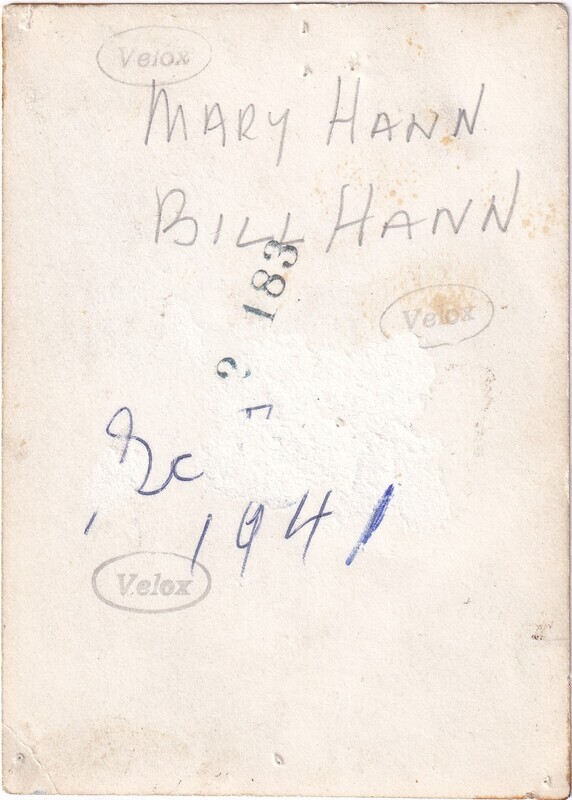 Velox
MARY HANN
BILL HANN
183
Velox
1941
Velox